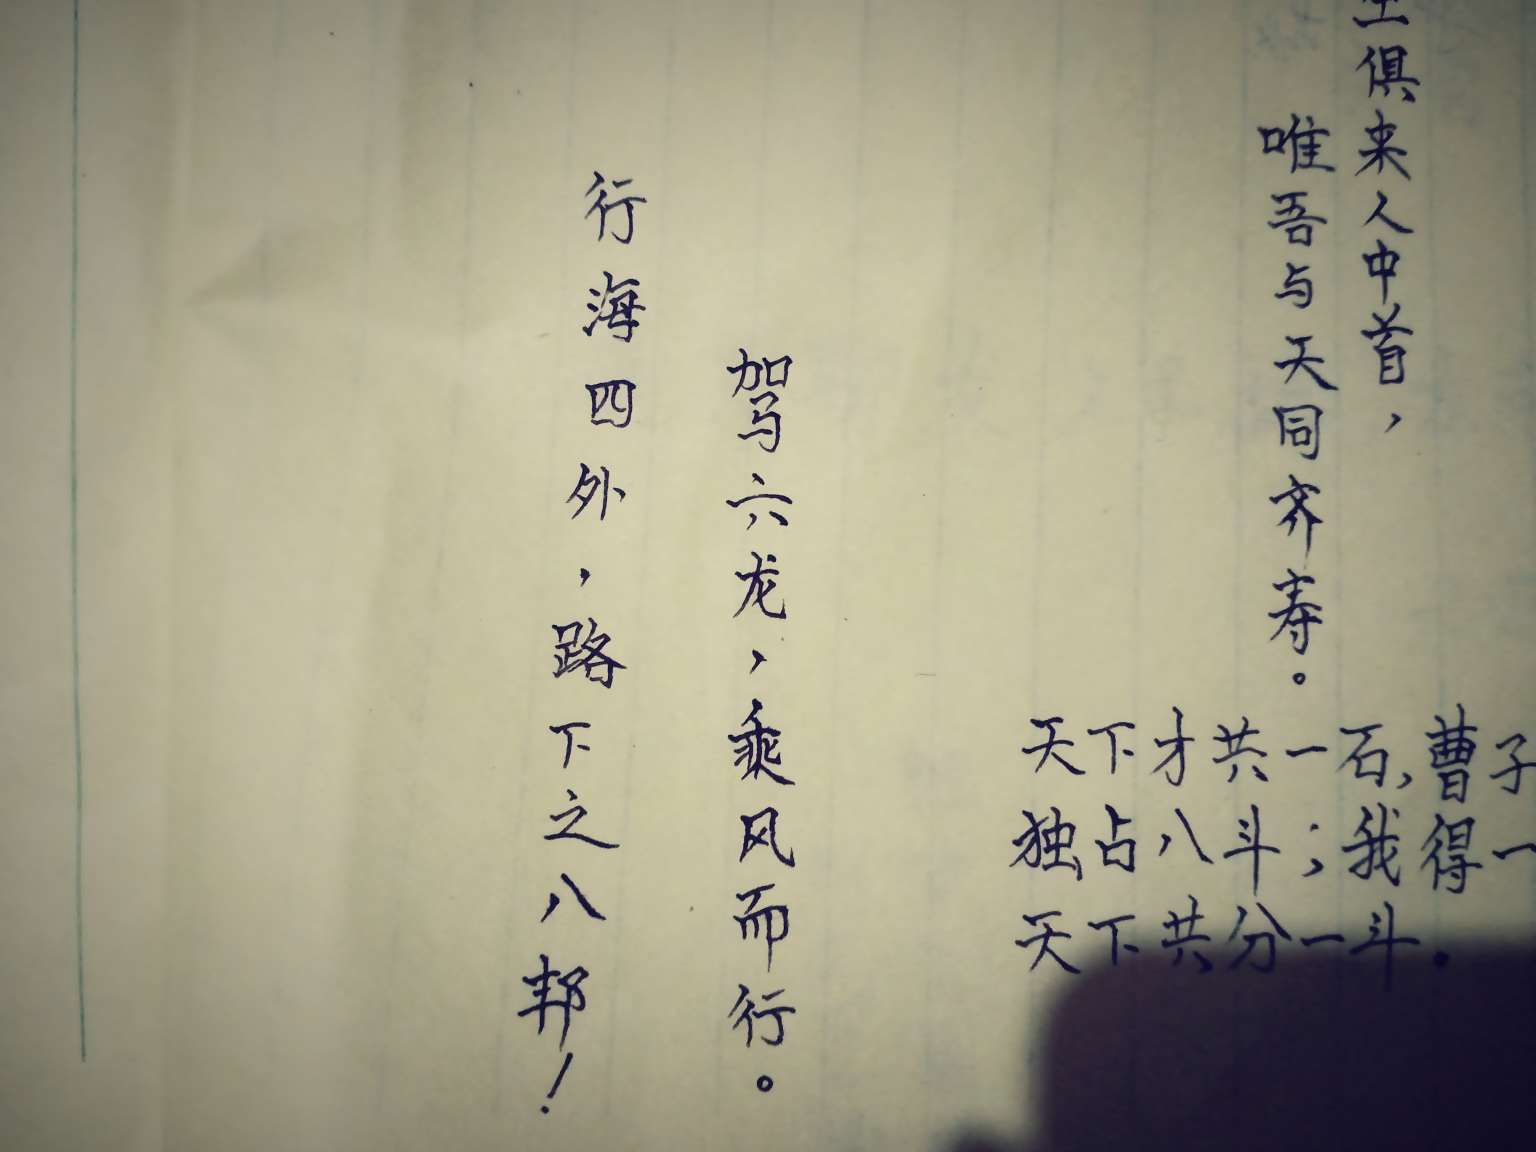 俱来人中首，
唯吾与天同齐寿。
天下才共一石，曹子
独占八斗；我得一
天下共分一斗。
驾六龙，乘风而行。
行海四外，路下之八邦！